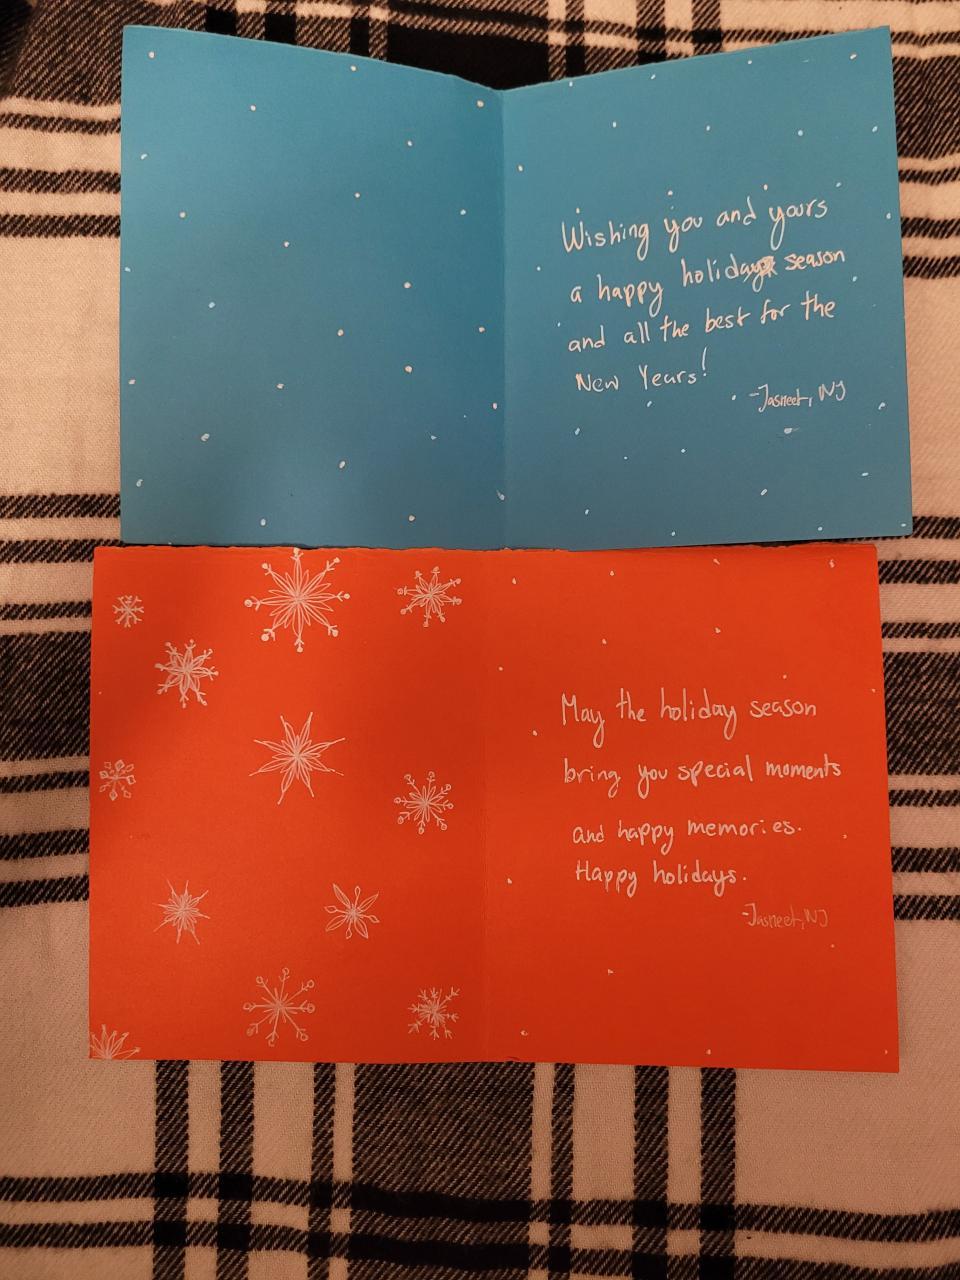 Wishing you and yours
a happy holiday season
and all the best for the
New Years!
-Jasneet, NJ
May the holiday season
bring you special moments
and happy memories.
Happy holidays.
-Jasneet, NJ